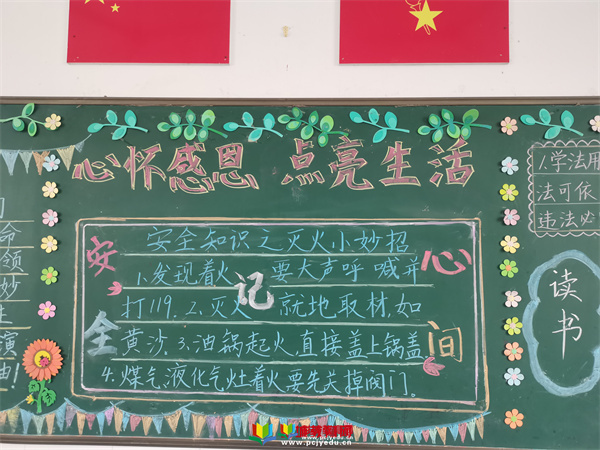 心怀感恩 点亮生活
安全知识之灭火小妙招
1.发现着火 要大声呼喊并
打119. 2.灭火 就地取材,如
黄沙. 3.油锅起火,直接盖上锅盖
4.煤气,液化气灶着火要先关掉阀门。
安全
记
心间
命
领
妙
生
演
油!
1.学法用
法可依
违法必
读书
www.pcjyedu.cn